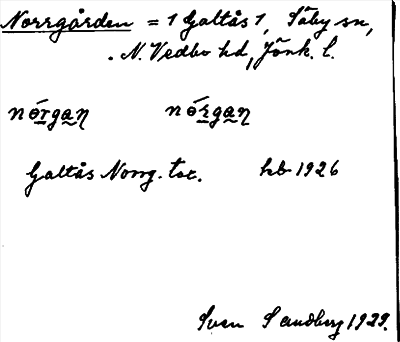 Norrgården = 1 Galtås 1, Säby sn,
N. Vedbo hd, Jönk. l.
nó̱rga̰ɳ nó̱rga̰ɳ
Galtås Norrg. tot. hb 1926
Sven Sandberg 1929.